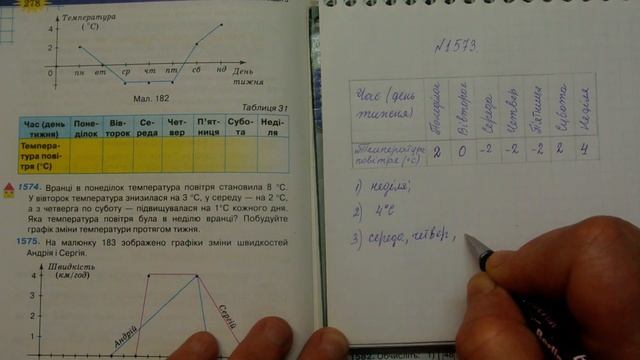 278
Температура
(°C)
4
2
0
пн вт ср чт пт сб нд
День
тижня
Мал. 182
Таблиця 31
Час (день тижня) Поне-ділок Вів-торок Се-реда Чет-вер П'ят-ниця Субо-та Неді-ля
Темпера-тура пові-тря (°C)
1574. Вранці в понеділок температура повітря становила 8 °C.
У вівторок температура знизилася на 3 °C, у середу — на 2 °C,
а з четверга по суботу — підвищувалася на 1°C кожного дня.
Яка температура повітря була в неділю вранці? Побудуйте
графік зміни температури протягом тижня.
1575. На малюнку 183 зображено графіки зміни швидкостей
Андрія і Сергія.
Швидкість
(км/год)
4
3
2
1
Андрій
Сергій
№1573.
Час (день тижня) Понеділок Вівторок Середа Четвер П'ятниця Субота Неділя
Температура повітря (°C) 2 0 -2 -2 -2 2 4
1) неділя;
2) 4°C
3) середа, четвер,